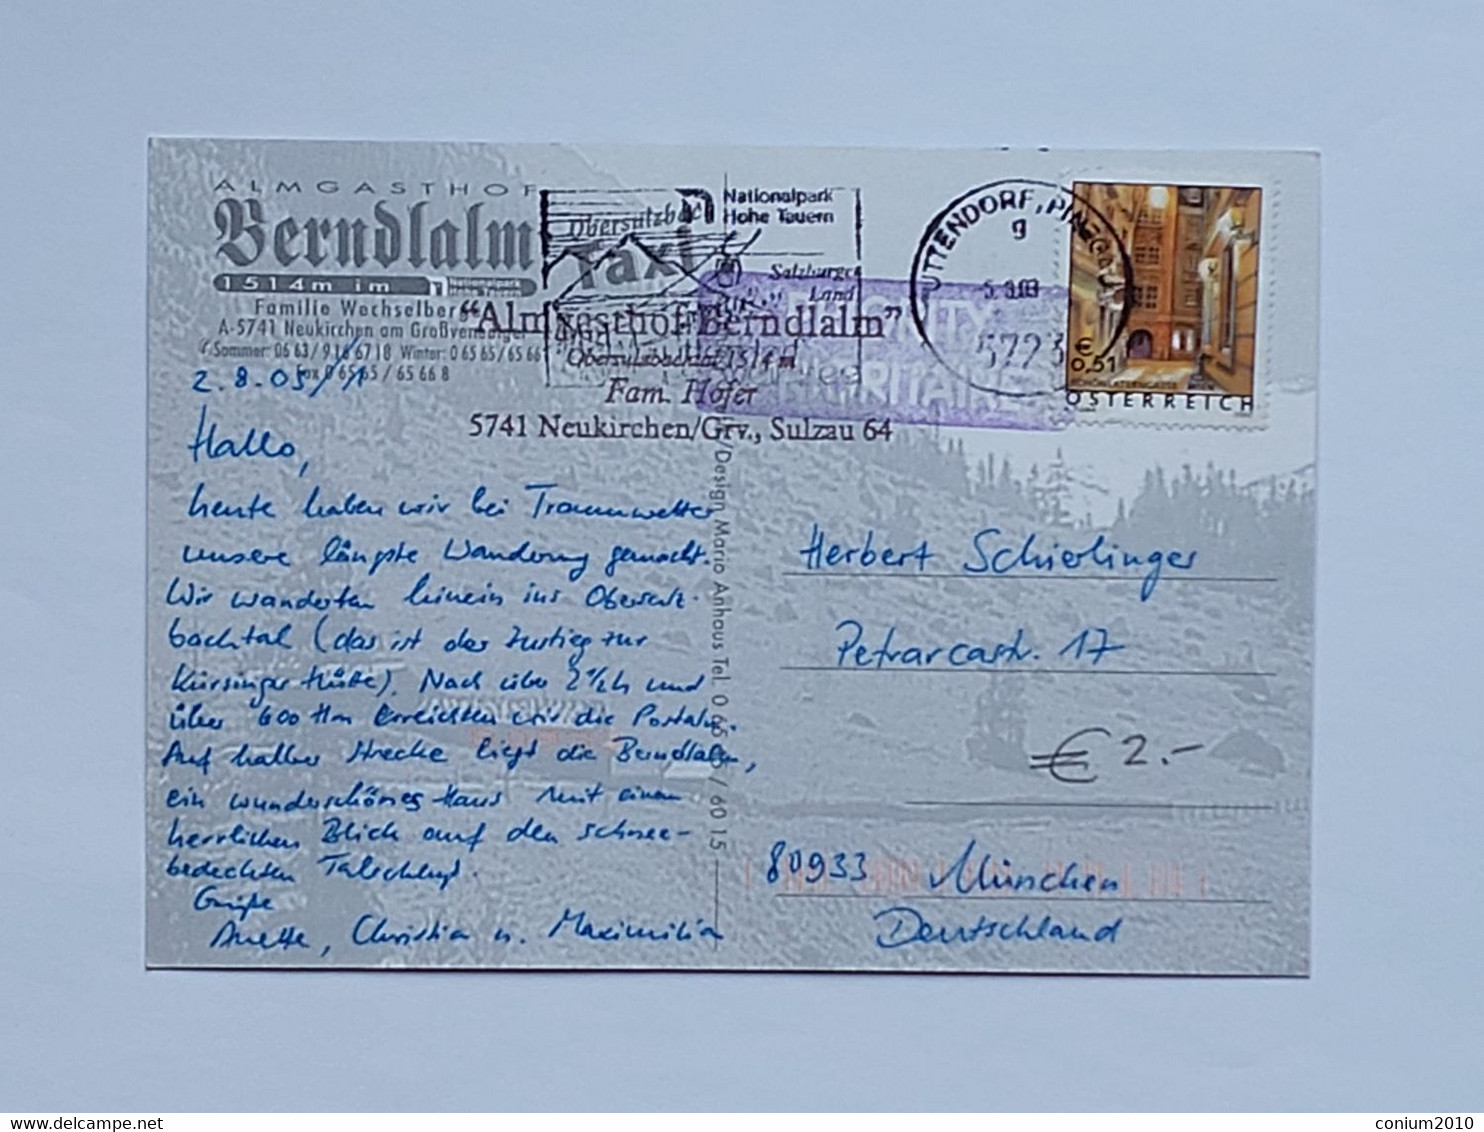 ALMGASTHOF
Berndlalm
1514m im
Familie Wechselberger
A-5741 Neukirchen am Großvenediger
Sommer: 06 63/9 16 67 18 Winter: 0 65 65/65 66
Fax 0 65 65 / 65 66 8
Obersulzbach
Taxi
Nationalpark
Hohe Tauern
Salzburger
Land
"Almgasthof Berndlalm"
Obersulzbachtal 1514 m
Fam. Hofer
5741 Neukirchen/Grv., Sulzau 64
PRIORITY
PRIORITAIRE
UTTENDORF, PINZGAU
g
5723
€
0,51
SCHÖNLATERNGASSE
ÖSTERREICH
/Design Mario Anhaus Tel. 0 65 65 / 60 15
2.8.03
Hallo,
heute haben wir bei Traumwetter
unsere längste Wanderung gemacht.
Wir wanderten hinein ins Obersulz-
bachtal (das ist der Zustieg zur
Kürsinger Hütte). Nach über 2 1/2 h und
über 600 Hm erreichten wir die Postalm.
Auf halber Strecke liegt die Berndlalm,
ein wunderschönes Haus mit einem
herrlichen Blick auf den schnee-
bedeckten Talschluß.
Grüße
Anette, Christian u. Maximilian
Herbert Schierlinger
Petrarcastr. 17
€ 2.-
80933 München
Deutschland
conium2010